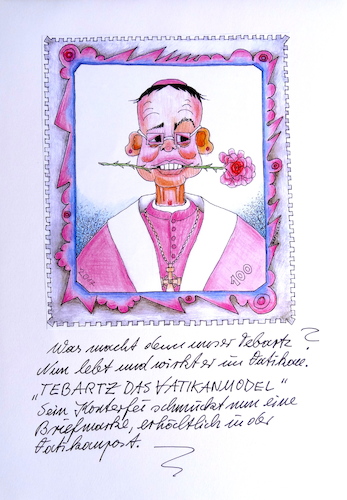 2017
100
Was macht denn unser Tebartz?
Nun lebt und wirkt er im Vatikan.
"TEBARTZ DAS VATIKANMODEL"
Sein Konterfei schmückt nun eine
Briefmarke, erhältlich in der
Vatikanpost.